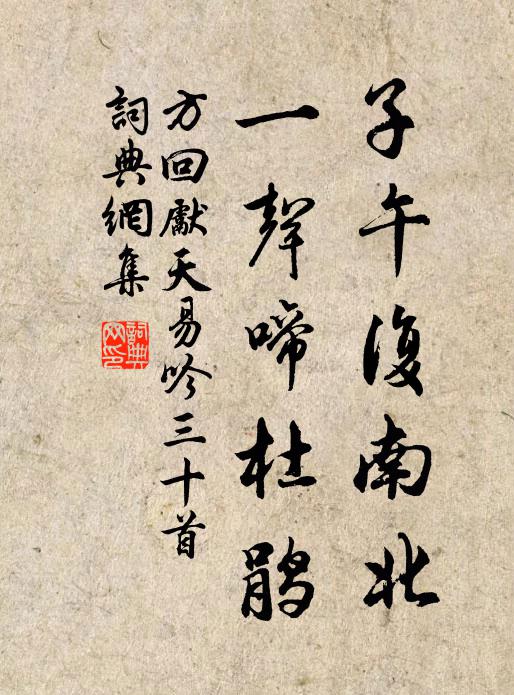 子午復南北
一聲啼杜鵑
方回獻天易吟三十首
詞典網集
詞典网印